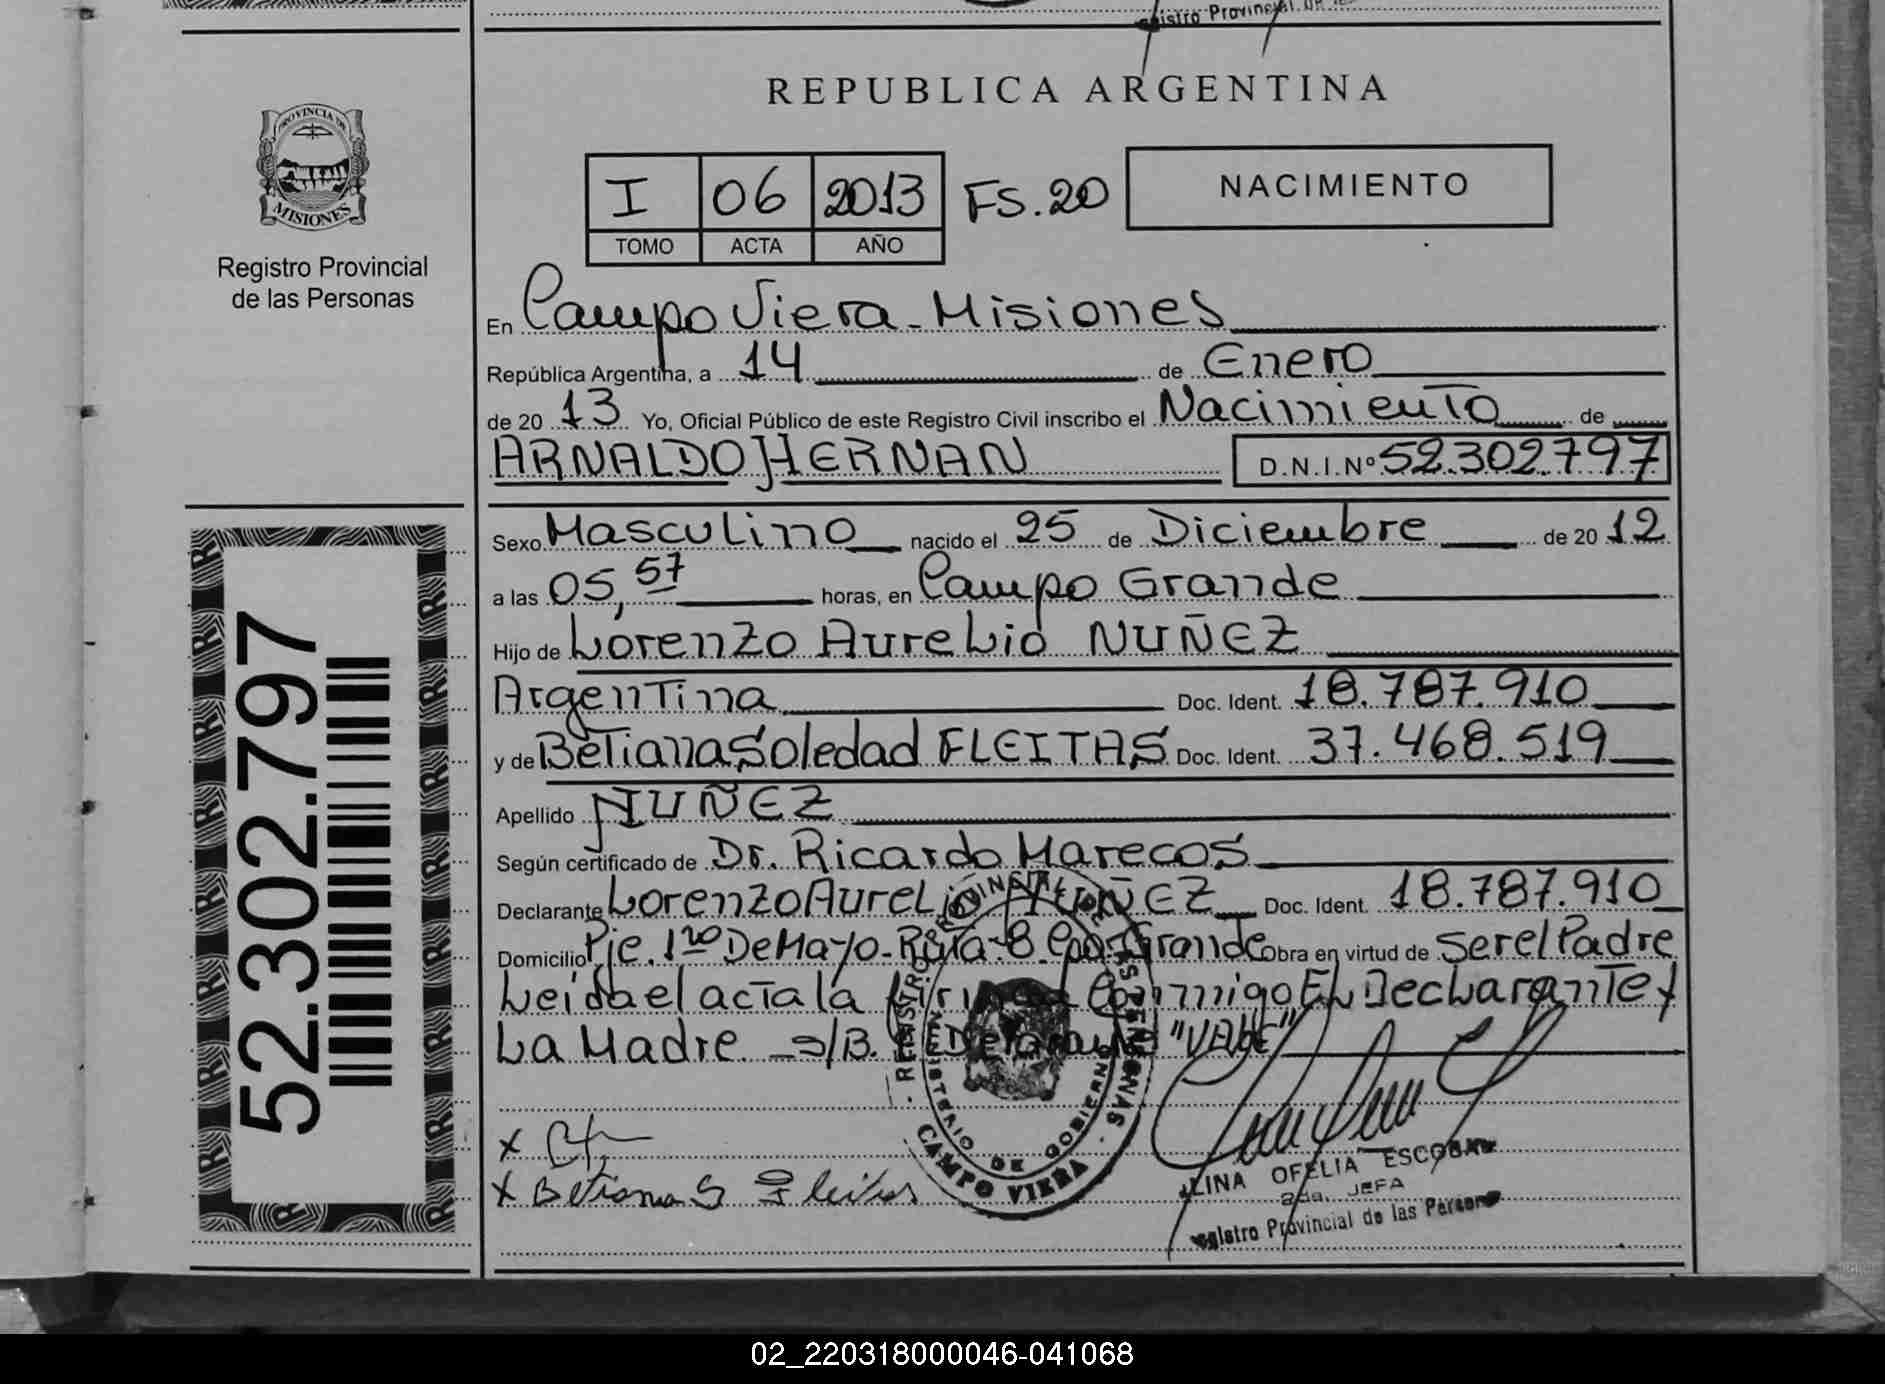 Registro Provincial
REPUBLICA ARGENTINA
PROVINCIA DE
MISIONES
Registro Provincial
de las Personas
I 06 2013 FS.20 NACIMIENTO
TOMO ACTA AÑO
En Campo Viera - Misiones
República Argentina, a 14 de Enero
de 20 13 Yo, Oficial Público de este Registro Civil inscribo el Nacimiento de
ARNALDO HERNAN D.N.I.Nº 52.302.797
Sexo Masculino nacido el 25 de Diciembre de 20 12
a las 05,57 horas, en Campo Grande
Hijo de Lorenzo Aurelio NUÑEZ
Argentina Doc. Ident. 18.787.910
y de Betiana Soledad FLEITAS Doc. Ident. 37.468.519
Apellido NUÑEZ
Según certificado de Dr. Ricardo Marecos
Declarante Lorenzo Aurelio NUÑEZ Doc. Ident. 18.787.910
Domicilio Pje. 1ro De Mayo - Ruta - 8 Cpo. Grande Obra en virtud de Ser el Padre
Leida el acta la Firman Conmigo EL Declarante y
La Madre S/B. "VALE"
x
x Betiana S Fleitas
REGISTRO PROVINCIAL DE LAS PERSONAS
MINISTERIO DE GOBIERNO
CAMPO VIERA
LINA OFELIA ESCOBAR
2da. JEFA
Registro Provincial de las Personas
52.302.797
02_220318000046-041068